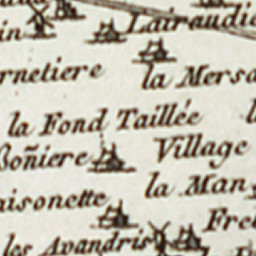 in
Lairaudie
rnetiere
la Mersa
la Fond Taillée
Boñiere
Village
la Man
aisonette
Fre
les Avandris